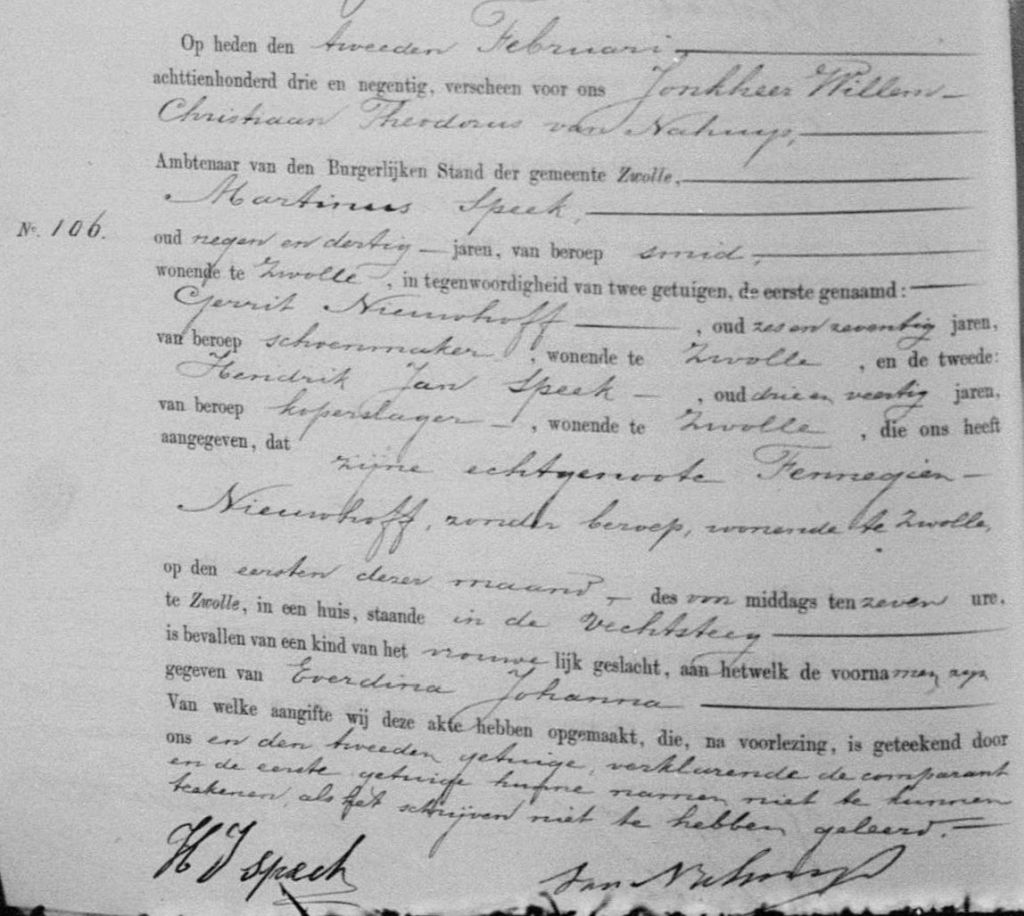 Op heden den tweeden Februari
achttienhonderd drie en negentig, verscheen voor ons Jonkheer Willem
Christiaan Theodorus van Nahuys,
Ambtenaar van den Burgerlijken Stand der gemeente Zwolle,
Martinus Speek,
No. 106.
oud negen en dertig jaren, van beroep smid,
wonende te Zwolle, in tegenwoordigheid van twee getuigen, de eerste genaamd:
Gerrit Nieuwhoff, oud zes en zeventig jaren,
van beroep schoenmaker, wonende te Zwolle, en de tweede:
Hendrik Jan Speek, oud drie en veertig jaren,
van beroep koperslager, wonende te Zwolle, die ons heeft
aangegeven, dat
zijne echtgenoote Fennegien
Nieuwhoff, zonder beroep, wonende te Zwolle,
op den eersten dezer maand, des voormiddags ten zeven ure,
te Zwolle, in een huis, staande in de Vechtsteeg
is bevallen van een kind van het vrouwelijk geslacht, aan hetwelk de voornamen zijn
gegeven van Everdina Johanna
Van welke aangifte wij deze akte hebben opgemaakt, die, na voorlezing, is geteekend door
ons en den tweeden getuige, verklarende de comparant
en de eerste getuige hunne namen niet te kunnen
teekenen, als het schrijven niet te hebben geleerd.
H J Speek van Nahuys